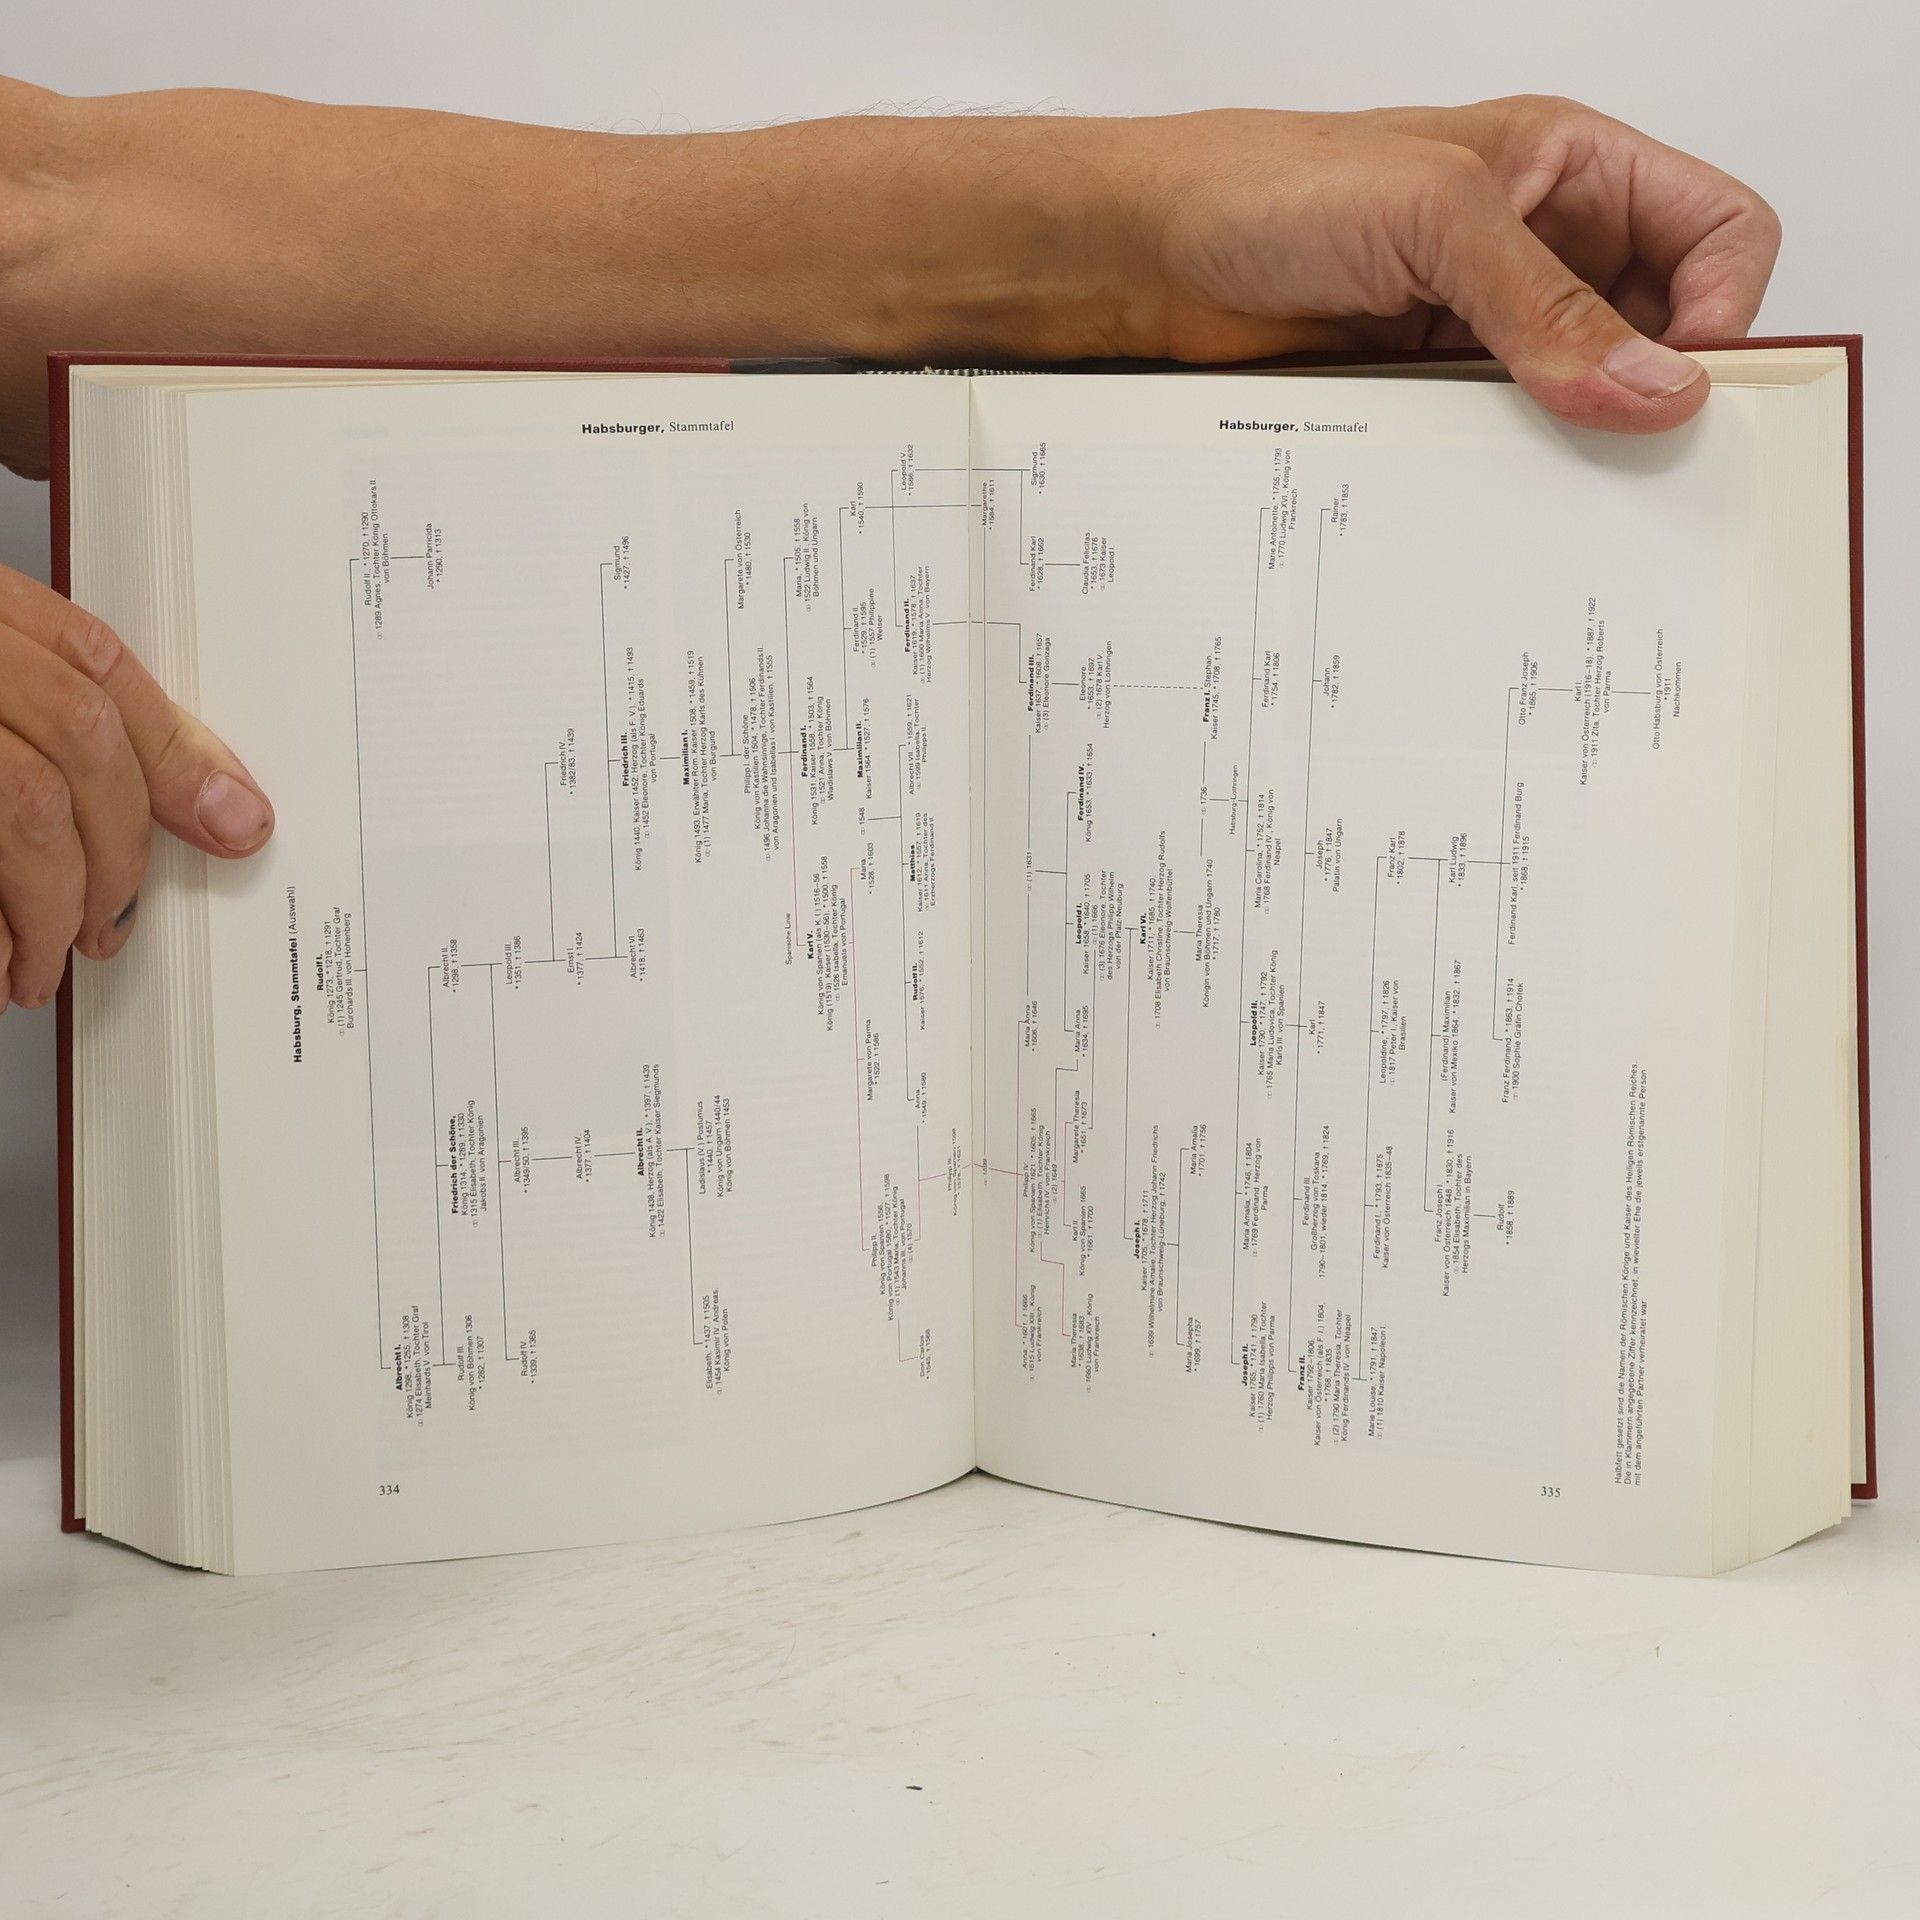 Habsburger, Stammtafel
Habsburg, Stammtafel (Auswahl)
Rudolf I.
König 1273, * 1218, † 1291
⚭ (1) 1245 Gertrud, Tochter Graf
Burchards III. von Hohenberg
Albrecht I.
König 1298, * 1255, † 1308
⚭ 1274 Elisabeth, Tochter Graf
Meinhards V. von Tirol
Rudolf II., * 1270, † 1290
⚭ 1289 Agnes, Tochter König Ottokars II.
von Böhmen
Johann Parricida
* 1290, † 1313
Rudolf III.
König von Böhmen 1306
* 1282, † 1307
Friedrich der Schöne,
König 1314, * 1289, † 1330
⚭ 1315 Elisabeth, Tochter König
Jakobs II. von Aragonien
Albrecht II.
* 1298, † 1358
Rudolf IV.
* 1339, † 1365
Albrecht III.
* 1349/50, † 1395
Leopold III.
* 1351, † 1386
Albrecht IV.
* 1377, † 1404
Ernst I.
* 1377, † 1424
Friedrich IV.
* 1382/83, † 1439
Albrecht II.
König 1438, Herzog (als A. V.), * 1397, † 1439
⚭ 1422 Elisabeth, Tochter Kaiser Siegmunds
Albrecht VI.
* 1418, † 1463
Friedrich III.
König 1440, Kaiser 1452, Herzog (als F. V.), * 1415, † 1493
⚭ 1452 Eleonore, Tochter König Eduards
von Portugal
Sigmund
* 1427, † 1496
Elisabeth, * 1437, † 1505
⚭ 1454 Kasimir IV. Andreas,
König von Polen
Ladislaus (V.) Postumus
* 1440, † 1457
König von Ungarn 1440/44
König von Böhmen 1453
Maximilian I.
König 1493, Erwählter Röm. Kaiser 1508, * 1459, † 1519
⚭ (1) 1477 Maria, Tochter Herzog Karls des Kühnen
von Burgund
Philipp I. der Schöne
König von Kastilien 1504, * 1478, † 1506
⚭ 1496 Johanna die Wahnsinnige, Tochter Ferdinands II.
von Aragonien und Isabellas I. von Kastilien, † 1555
Margarete von Österreich
* 1480, † 1530
Spanische Linie
Karl V.
König von Spanien (als K. I.) 1516–56
König (1519), Kaiser (1530–56), * 1500, † 1558
⚭ 1526 Isabella, Tochter König
Emanuels von Portugal
Ferdinand I.
König 1531, Kaiser 1558, * 1503, † 1564
⚭ 1521 Anna, Tochter König
Wladislaws V. von Böhmen
Maria, * 1505, † 1558
⚭ 1522 Ludwig II., König von
Böhmen und Ungarn
Philipp II.
König von Spanien 1556,
König von Portugal 1580, * 1527, † 1598
⚭ (1) 1543 Maria, Tochter König
Johanns III. von Portugal
⚭ (4) 1570
Margarete von Parma
* 1522, † 1586
Maria
* 1528, † 1603
⚭ 1548
Maximilian II.
Kaiser 1564, * 1527, † 1576
Ferdinand II.
* 1529, † 1595
⚭ (1) 1557 Philippine
Welser
Karl
* 1540, † 1590
Don Carlos
* 1545, † 1568
Anna
* 1549, † 1580
Rudolf II.
Kaiser 1576, * 1552, † 1612
Matthias
Kaiser 1612, * 1557, † 1619
⚭ 1611 Anna, Tochter des
Erzherzogs Ferdinand II.
Albrecht VII., * 1559, † 1621
⚭ 1599 Isabella, Tochter
Philipps II.
Ferdinand II.
Kaiser 1619, * 1578, † 1637
⚭ (1) 1600 Maria Anna, Tochter
Herzog Wilhelms V. von Bayern
Leopold V.
* 1586, † 1632
Philipp III.
334
Habsburger, Stammtafel
⚭ 1599
Margarethe
* 1584, † 1611
Anna, * 1601, † 1666
⚭ 1615 Ludwig XIII., König
von Frankreich
Philipp IV.
König von Spanien 1621, * 1605, † 1665
⚭ (1) Elisabeth, Tochter König
Heinrichs IV. von Frankreich
⚭ (2) 1649
Maria Anna
* 1606, † 1646
⚭ (1) 1631
Ferdinand III.
Kaiser 1637, * 1608, † 1657
⚭ (3) Eleonore Gonzaga
Ferdinand Karl
* 1628, † 1662
Sigmund
* 1630, † 1665
Maria Theresia
* 1638, † 1683
⚭ 1660 Ludwig XIV., König
von Frankreich
Karl II.
König von Spanien 1665
* 1661, † 1700
Margarete Theresia
* 1651, † 1673
Maria Anna
* 1634, † 1696
Leopold I.
Kaiser 1658, * 1640, † 1705
⚭ (1) 1666
⚭ (3) 1676 Eleonore, Tochter
des Herzogs Philipp Wilhelm
von der Pfalz-Neuburg
Ferdinand IV.
König 1653, * 1633, † 1654
Eleonore
* 1653, † 1697
⚭ (2) 1678 Karl V.,
Herzog von Lothringen
Claudia Felicitas
* 1653, † 1676
⚭ 1673 Kaiser
Leopold I.
Joseph I.
Kaiser 1705, * 1678, † 1711
⚭ 1699 Wilhelmine Amalie, Tochter Herzog Johann Friedrichs
von Braunschweig-Lüneburg, † 1742
Karl VI.
Kaiser 1711, * 1685, † 1740
⚭ 1708 Elisabeth Christine, Tochter Herzog Rudolfs
von Braunschweig-Wolfenbüttel
Maria Josepha
* 1699, † 1757
Maria Amalia
* 1701, † 1756
Maria Theresia
Königin von Böhmen und Ungarn 1740
* 1717, † 1780
⚭ 1736
Franz I. Stephan
Kaiser 1745, * 1708, † 1765
Habsburg-Lothringen
Joseph II.
Kaiser 1765, * 1741, † 1790
⚭ (1) 1760 Maria Isabella, Tochter
Herzog Philipps von Parma
Maria Amalia, * 1746, † 1804
⚭ 1769 Ferdinand, Herzog von
Parma
Leopold II.
Kaiser 1790, * 1747, † 1792
⚭ 1765 Maria Ludovica, Tochter König
Karls III. von Spanien
Maria Carolina, * 1752, † 1814
⚭ 1768 Ferdinand IV., König von
Neapel
Ferdinand Karl
* 1754, † 1806
Marie Antoinette, * 1755, † 1793
⚭ 1770 Ludwig XVI., König von
Frankreich
Franz II.
Kaiser 1792–1806,
Kaiser von Österreich (als F. I.) 1804,
* 1768, † 1835
⚭ (2) 1790 Maria Theresia, Tochter
König Ferdinands IV. von Neapel
Ferdinand III.
Großherzog von Toskana
1790–1801, wieder 1814, * 1769, † 1824
Karl
* 1771, † 1847
Joseph
* 1776, † 1847
Palatin von Ungarn
Johann
* 1782, † 1859
Rainer
* 1783, † 1853
Marie Louise, * 1791, † 1847
⚭ (1) 1810 Kaiser Napoleon I.
Ferdinand I., * 1793, † 1875
Kaiser von Österreich 1835–48
Leopoldine, * 1797, † 1826
⚭ 1817 Peter I., Kaiser von
Brasilien
Franz Karl
* 1802, † 1878
Franz Joseph I.
Kaiser von Österreich 1848, * 1830, † 1916
⚭ 1854 Elisabeth, Tochter des
Herzogs Maximilian in Bayern
(Ferdinand) Maximilian
Kaiser von Mexiko 1864, * 1832, † 1867
Karl Ludwig
* 1833, † 1896
Rudolf
* 1858, † 1889
Franz Ferdinand, * 1863, † 1914
⚭ 1900 Sophie Gräfin Chotek
Ferdinand Karl, seit 1911 Ferdinand Burg
* 1868, † 1915
Otto Franz Joseph
* 1865, † 1906
Karl I.
Kaiser von Österreich (1916–18), * 1887, † 1922
⚭ 1911 Zita, Tochter Herzog Roberts
von Parma
Otto Habsburg von Österreich
* 1911
Nachkommen
Halbfett gesetzt sind die Namen der Römischen Könige und Kaiser des Heiligen Römischen Reiches.
Die in Klammern angegebene Ziffer kennzeichnet, in wievielter Ehe die jeweils erstgenannte Person
mit dem angeführten Partner verheiratet war
335